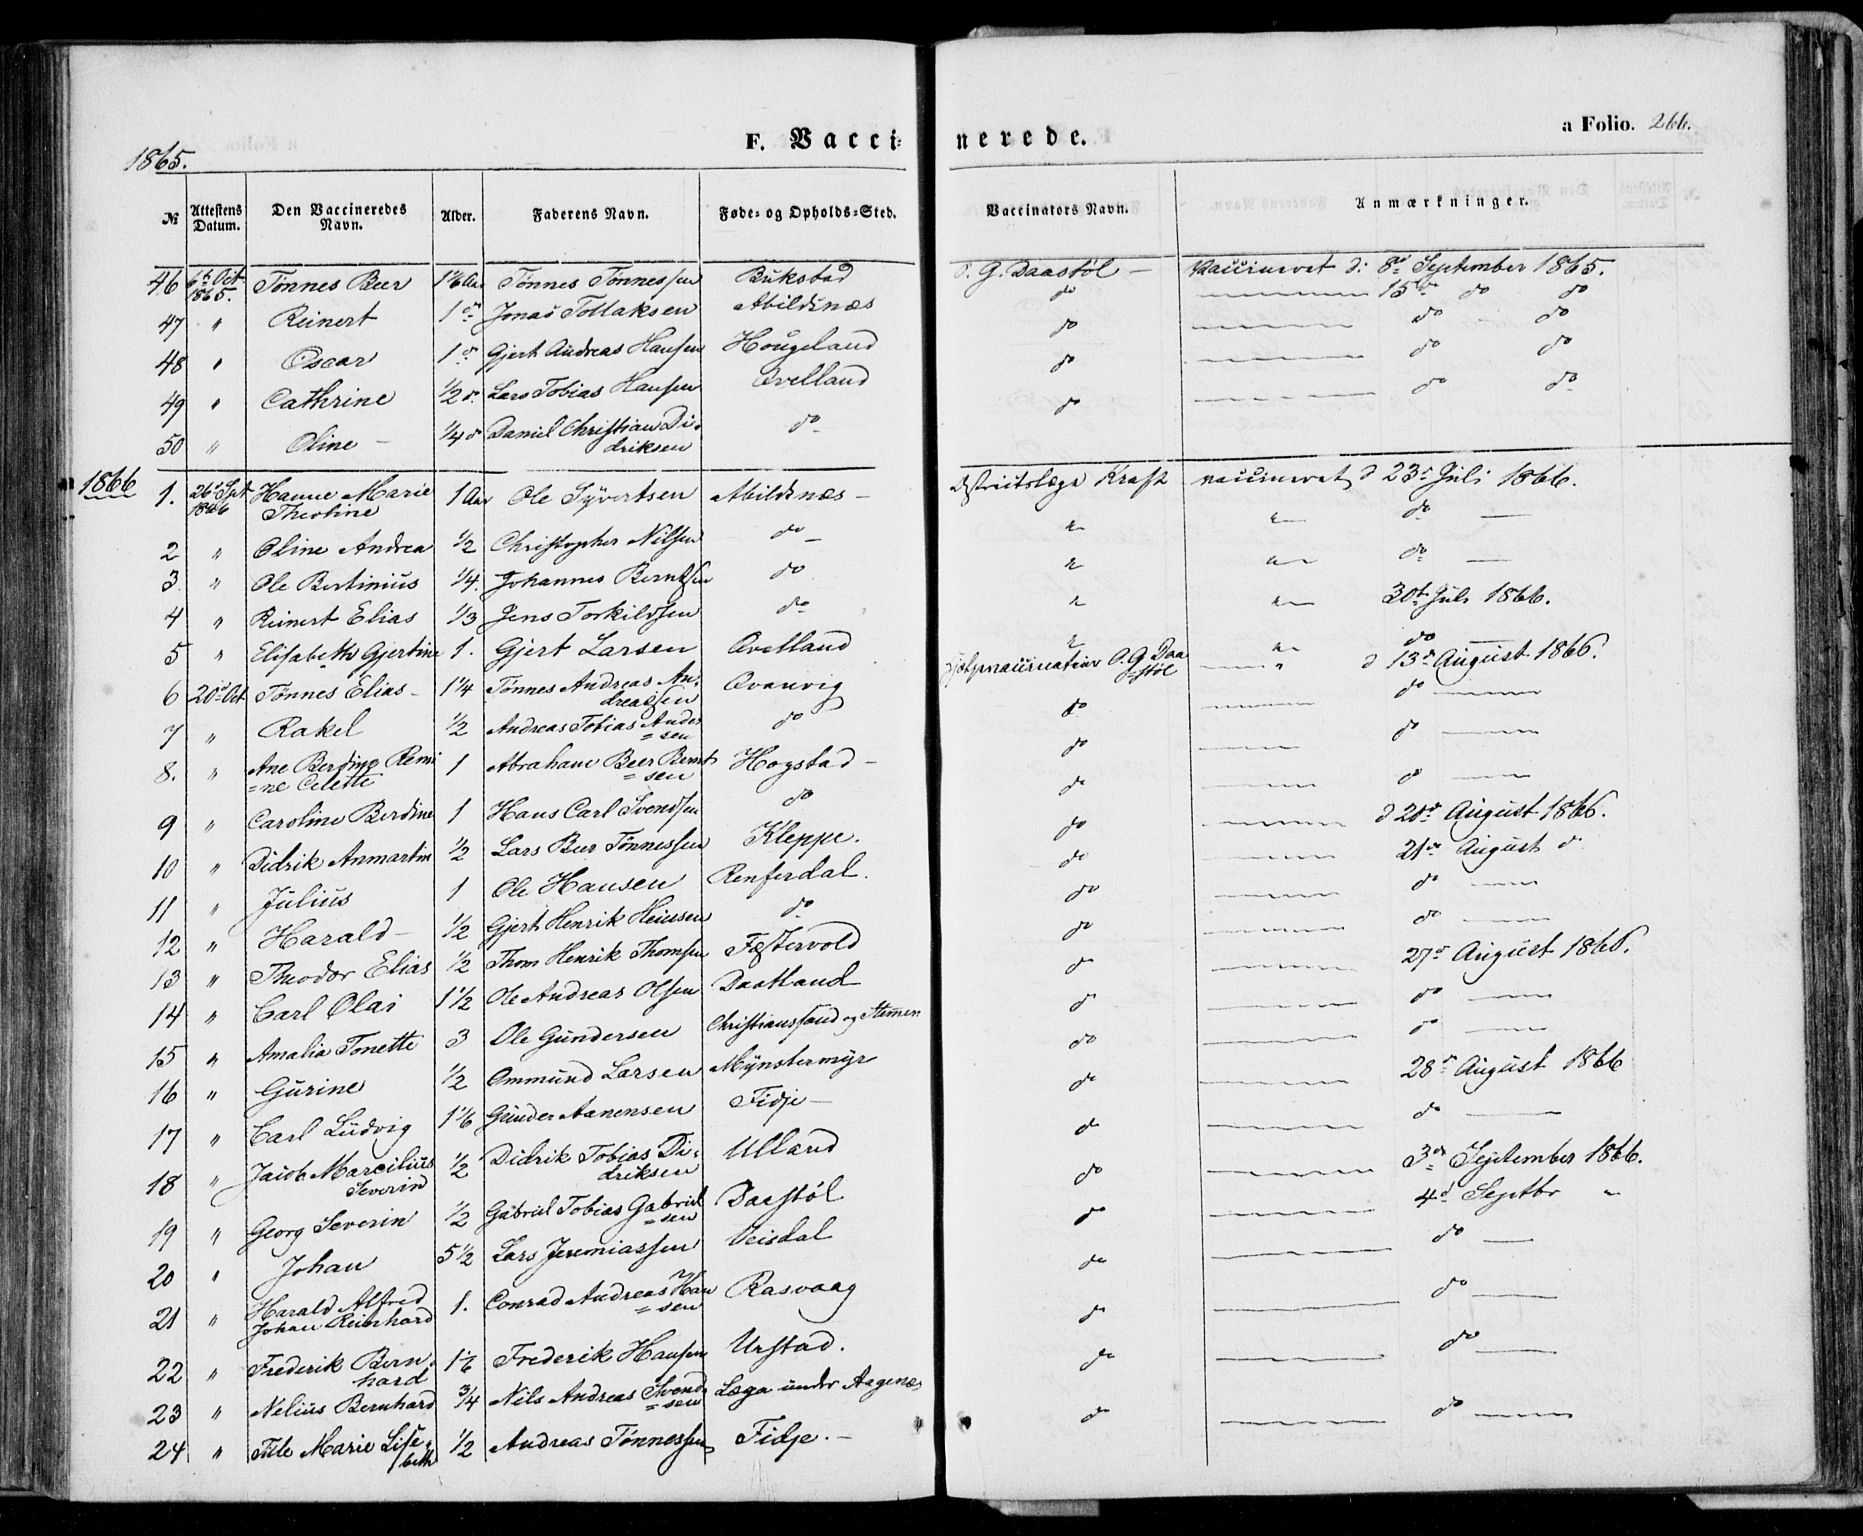 F. Vaccinerede.
a Folio. 266.
1865.
№ Attestens Datum. Den Vaccineredes Navn. Alder. Faderens Navn. Føde- og Opholds-Sted. Vaccinators Navn. Anmærkninger.
46 6te Oct 1865. Tønnes Beer 1 1/6 Aar Tønnes Tønnessen Bukstad O. G. Daastøl — Vaccineret d: 8de September 1865.
47 " Reinert 1 do Jonas Tollaksen Abildsnæs do 15de do do
48 " Oscar 1 do Gjert Andreas Hansen Hougeland do do do
49 " Cathrine 1/2 do Lars Tobias Hansen Øvelland do do do
50 " Oline — 1/4 do Daniel Christian Di-
driksen do do do do
1866
1. 26de Spt 1866 Hanne Marie 1 Aar Ole Syvertsen Abildsnæs — Districtslæge Kraft vaccineret d 23de Juli 1866.
Theoline
2 " Oline Andrea 1/2 Christopher Nilsen do — " " do —
3 " Ole Bertinius 1/4. Johannes Berntsen do " " do —
4 " Reinert Elias 1/3 Jens Torkildsen do " " 30te Juli 1866.
5 " Elisabeth Gjertine 1. Gjert Larsen Øvelland " " do
6 20de Oct Tønnes Elias — 1 1/4 Tønnes Andreas An- Qvanvig Hjelpevaccinateur O. G. Daa d 13de August 1866.
dreassen =støl
7 " Rakel 1/2 Andreas Tobias Ander do do do
=sen
8. " Ane Berdine Remi 1 Abraham Beer Bernt Hogstad — do do
=ne Celette =sen
9 " Caroline Berdine 1 Hans Carl Svendsen do do do
10 " Didrik Anmartin 1/2 Lars Beer Tønnessen Kleppe. do d 20de August 1866.
11 " Julius 1 Ole Hansen Renferdal. do 21de August do
12 " Harald — 1/2 Gjert Henrik Heinsen do do do
13 " Theodor Elias 1/2 Thom Henrik Thomsen Fæstervold do do
14 " Carl Olai 1 1/2 Ole Andreas Olsen Daatland do 27de August 1866.
15 " Amalia Tonette 3 Ole Gundersen Christianssand og Stemmen do do
16 " Gurine 1/2 Ommund Larsen Mynstermyr do do
17 " Carl Ludvig 1 1/6 Gunder Aanensen Fidje — do 28de August 1866
18 " Jacob Marcilius 1/2 Didrik Tobias Di- Ulland do do
Severin driksen
19 " Georg Severin 1/2 Gabriel Tobias Gabriel Daastøl do 3de September 1866.
=sen
20 " Johan 5 1/2 Lars Jeremiassen Veisdal do 4de Septbr "
21 " Harald Alfred 1. Conrad Andreas Han Rasvaag do do
Johan Reinhard =sen
22 " Frederik Bern- 1 1/6 Frederik Hansen Urstad. do do
hard
23 " Nelius Bernhard 3/4 Nils Andreas Svend Løga under Aagenæs do do
=sen
24 " Marie Lise- 1/2 Andreas Tønnessen Fidje. — do do
beth